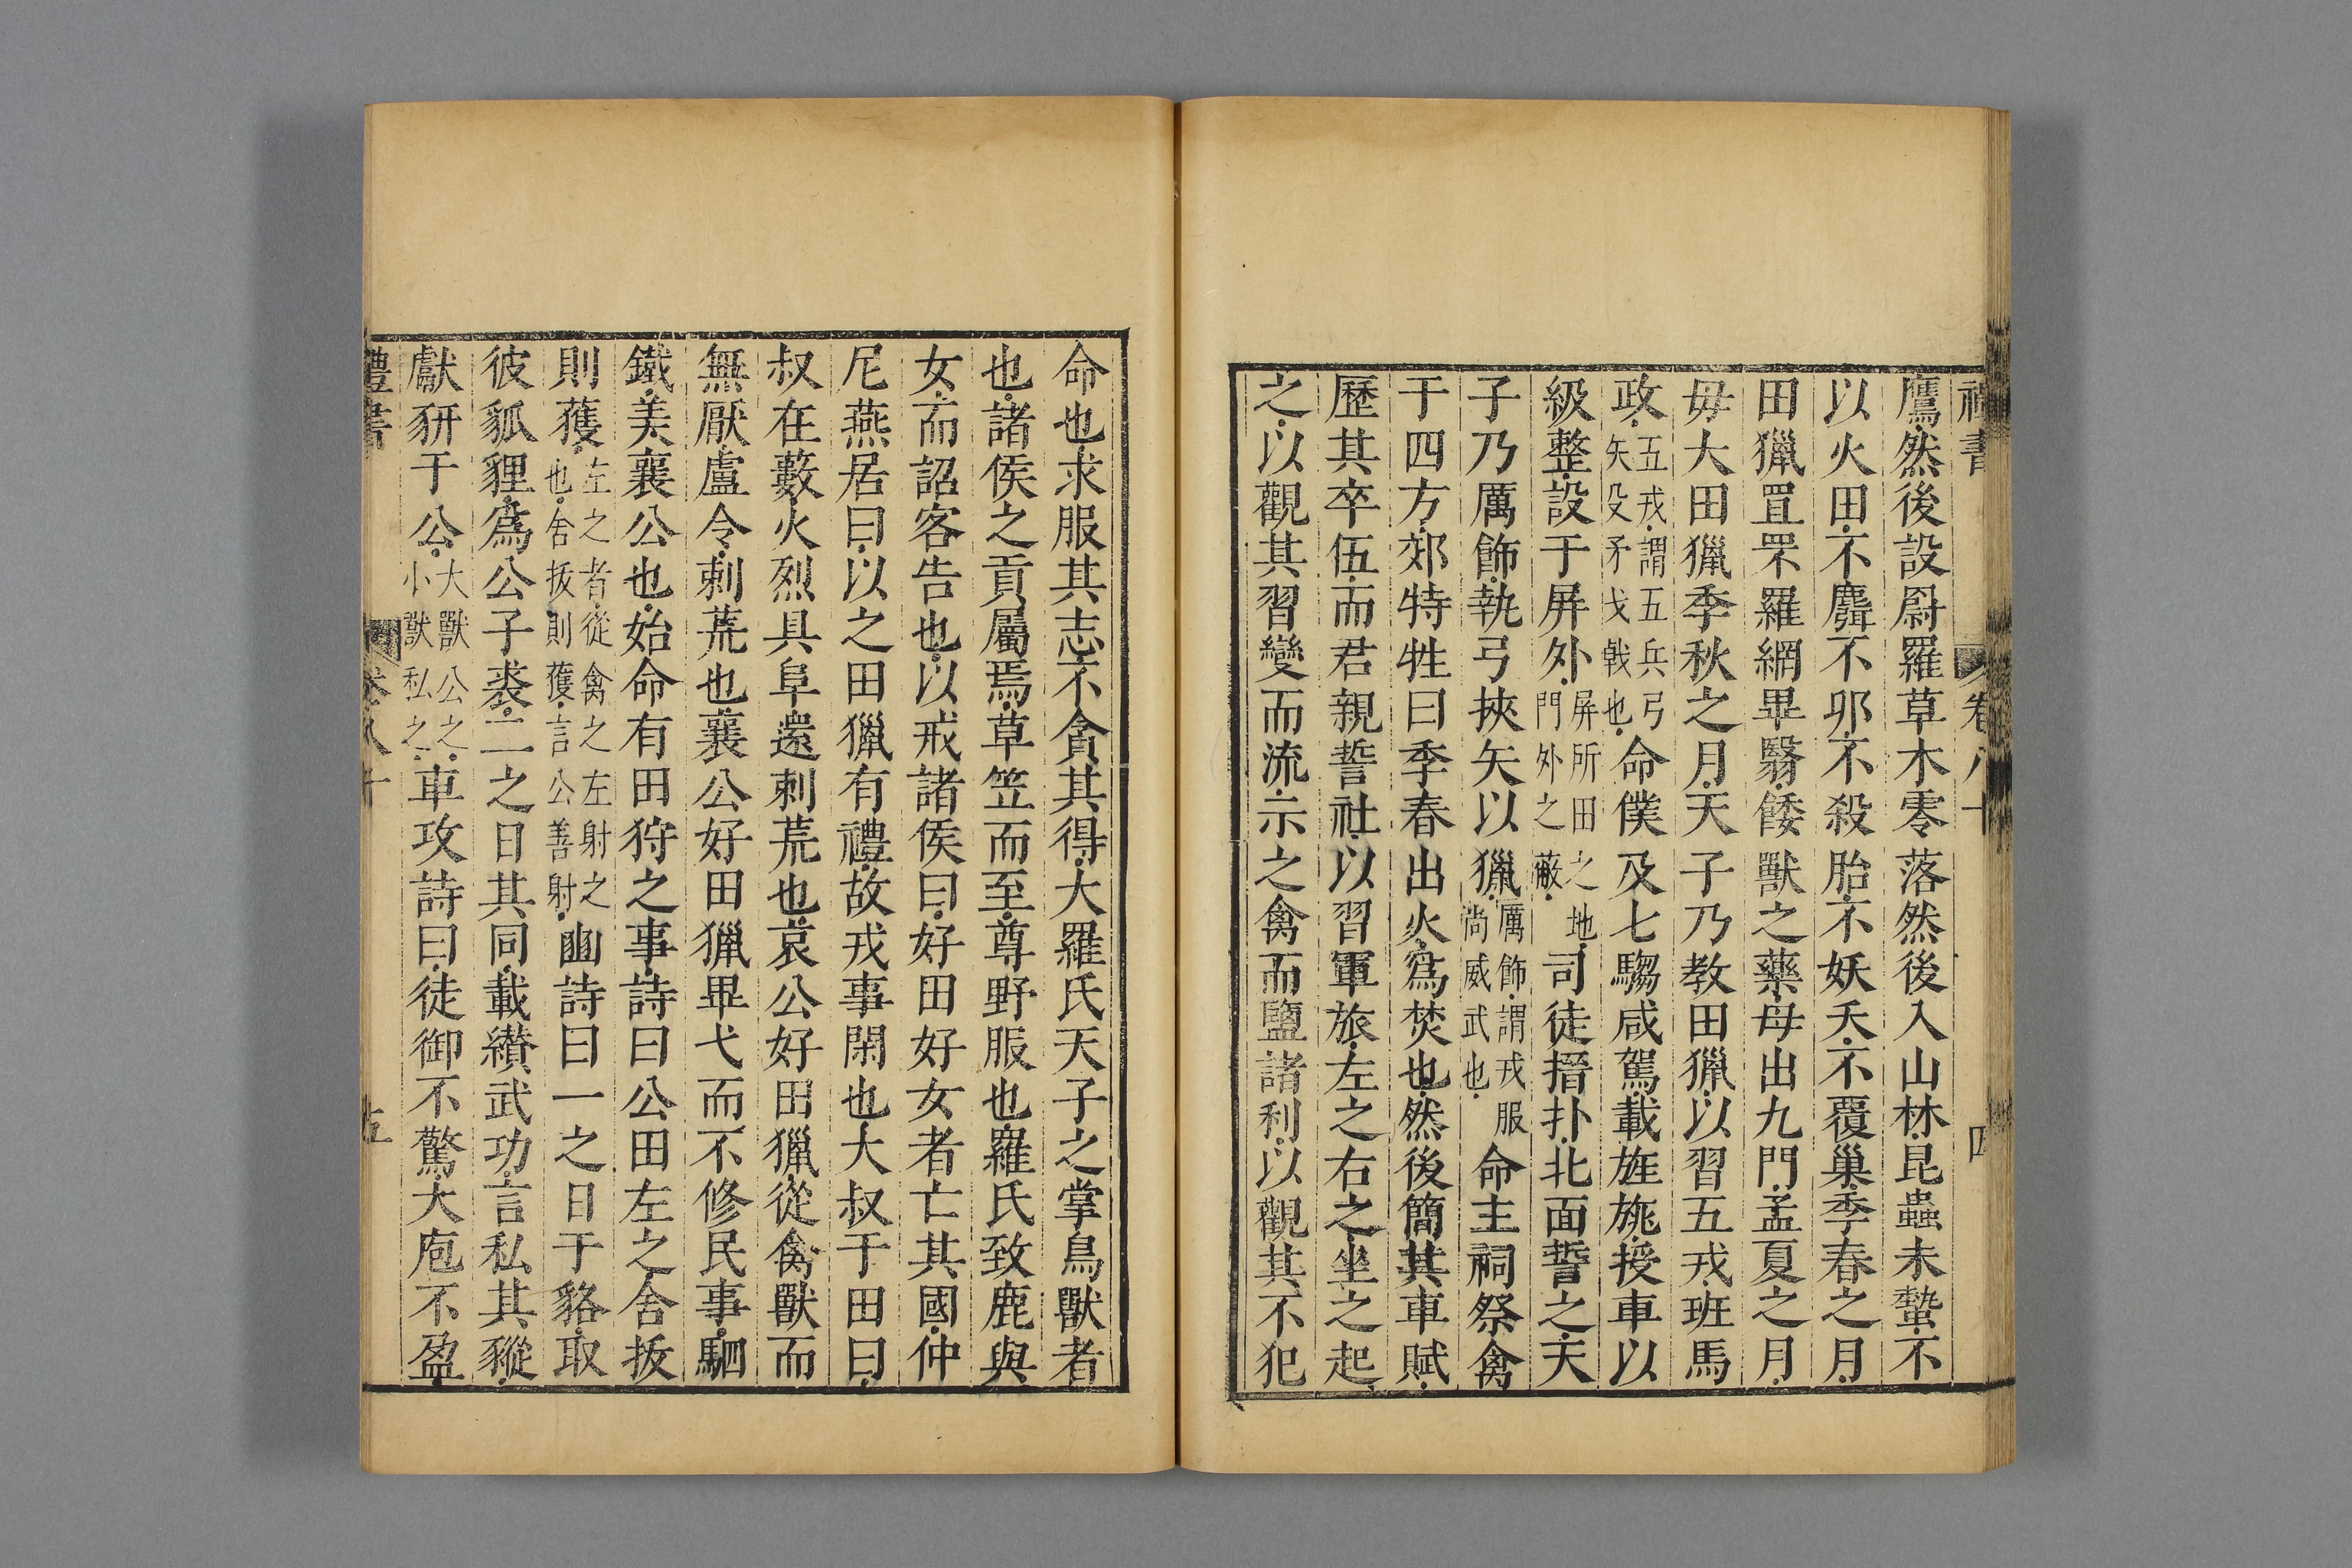 禮書　卷八十　四
鷹然後設罻羅草木零落然後入山林昆蟲未蟄不
以火田不麛不卵不殺胎不妖夭不覆巢季春之月
田獵罝罘羅網畢翳餧獸之藥毋出九門孟夏之月
毋大田獵季秋之月天子乃教田獵以習五戎班馬
政五戎謂五兵弓矢殳矛戈戟也命僕及七騶咸駕載旌旐授車以
級整設于屏外屏所田之地門外之蔽司徒搢扑北面誓之天
子乃厲飾執弓挾矢以獵厲飾謂戎服尚威武也命主祠祭禽
于四方郊特牲曰季春出火為焚也然後簡其車賦
歷其卒伍而君親誓社以習軍旅左之右之坐之起
之以觀其習變而流示之禽而鹽諸利以觀其不犯
命也求服其志不貪其得大羅氏天子之掌鳥獸者
也諸侯之貢屬焉草笠而至尊野服也羅氏致鹿與
女而詔客告也以戒諸侯曰好田好女者亡其國仲
尼燕居曰以之田獵有禮故戎事閑也大叔于田曰
叔在藪火烈具阜還刺荒也哀公好田獵從禽獸而
無厭盧令刺荒也襄公好田獵畢弋而不修民事駟
鐵美襄公也始命有田狩之事詩曰公田左之舍拔
則獲左之者從禽之左射之也舍拔則獲言公善射豳詩曰一之日于貉取
彼狐狸為公子裘二之日其同載纘武功言私其豵
獻豜于公大獸公之小獸私之車攻詩曰徒御不驚大庖不盈
禮書　卷八十　五